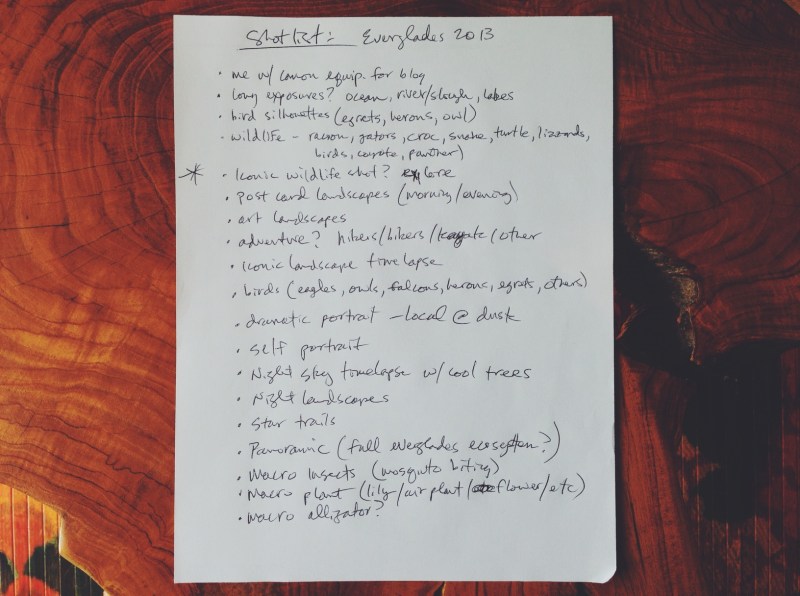 Shot list: Everglades 2013
• me w/ canon equip. for blog
• long exposures? ocean, river/slough, lakes
• bird silhouettes (egrets, herons, owl)
- wildlife - racoon, gators, croc, snake, turtle, lizards,
birds, coyote, panther)
* • Iconic wildlife shot?
• Post card landscapes (morning/evening)
• art landscapes
• adventure? hikers/bikers/kayak/other
• iconic landscape timelapse
• birds (eagles, owls, falcons, herons, egrets, others)
• dramatic portrait - local @ dusk
• self portrait
• Night sky timelapse w/ cool trees
• Night landscapes
• Star trails
• Panoramic (full everglades ecosystem?)
• Macro Insects (mosquito biting)
• Macro plant (lily/air plant/flower/etc)
• macro alligator?